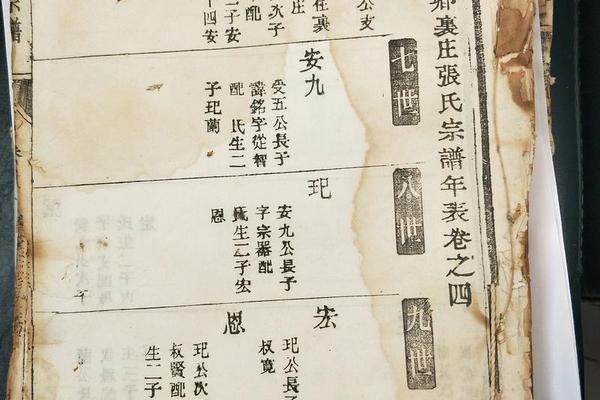 裏庄張氏宗譜年表卷之四
公支
在裏
庄
次子
配
二子安
十四安
七世
安九
受五公長子
諱銘字從智
配　氏生二
子玘蘭
八世
玘
安九公長子
字宗器配
氏生二子宏
恩
九世
宏
玘公長子
叔寬
恩
玘公次
叔賢配
生二子
宗譜